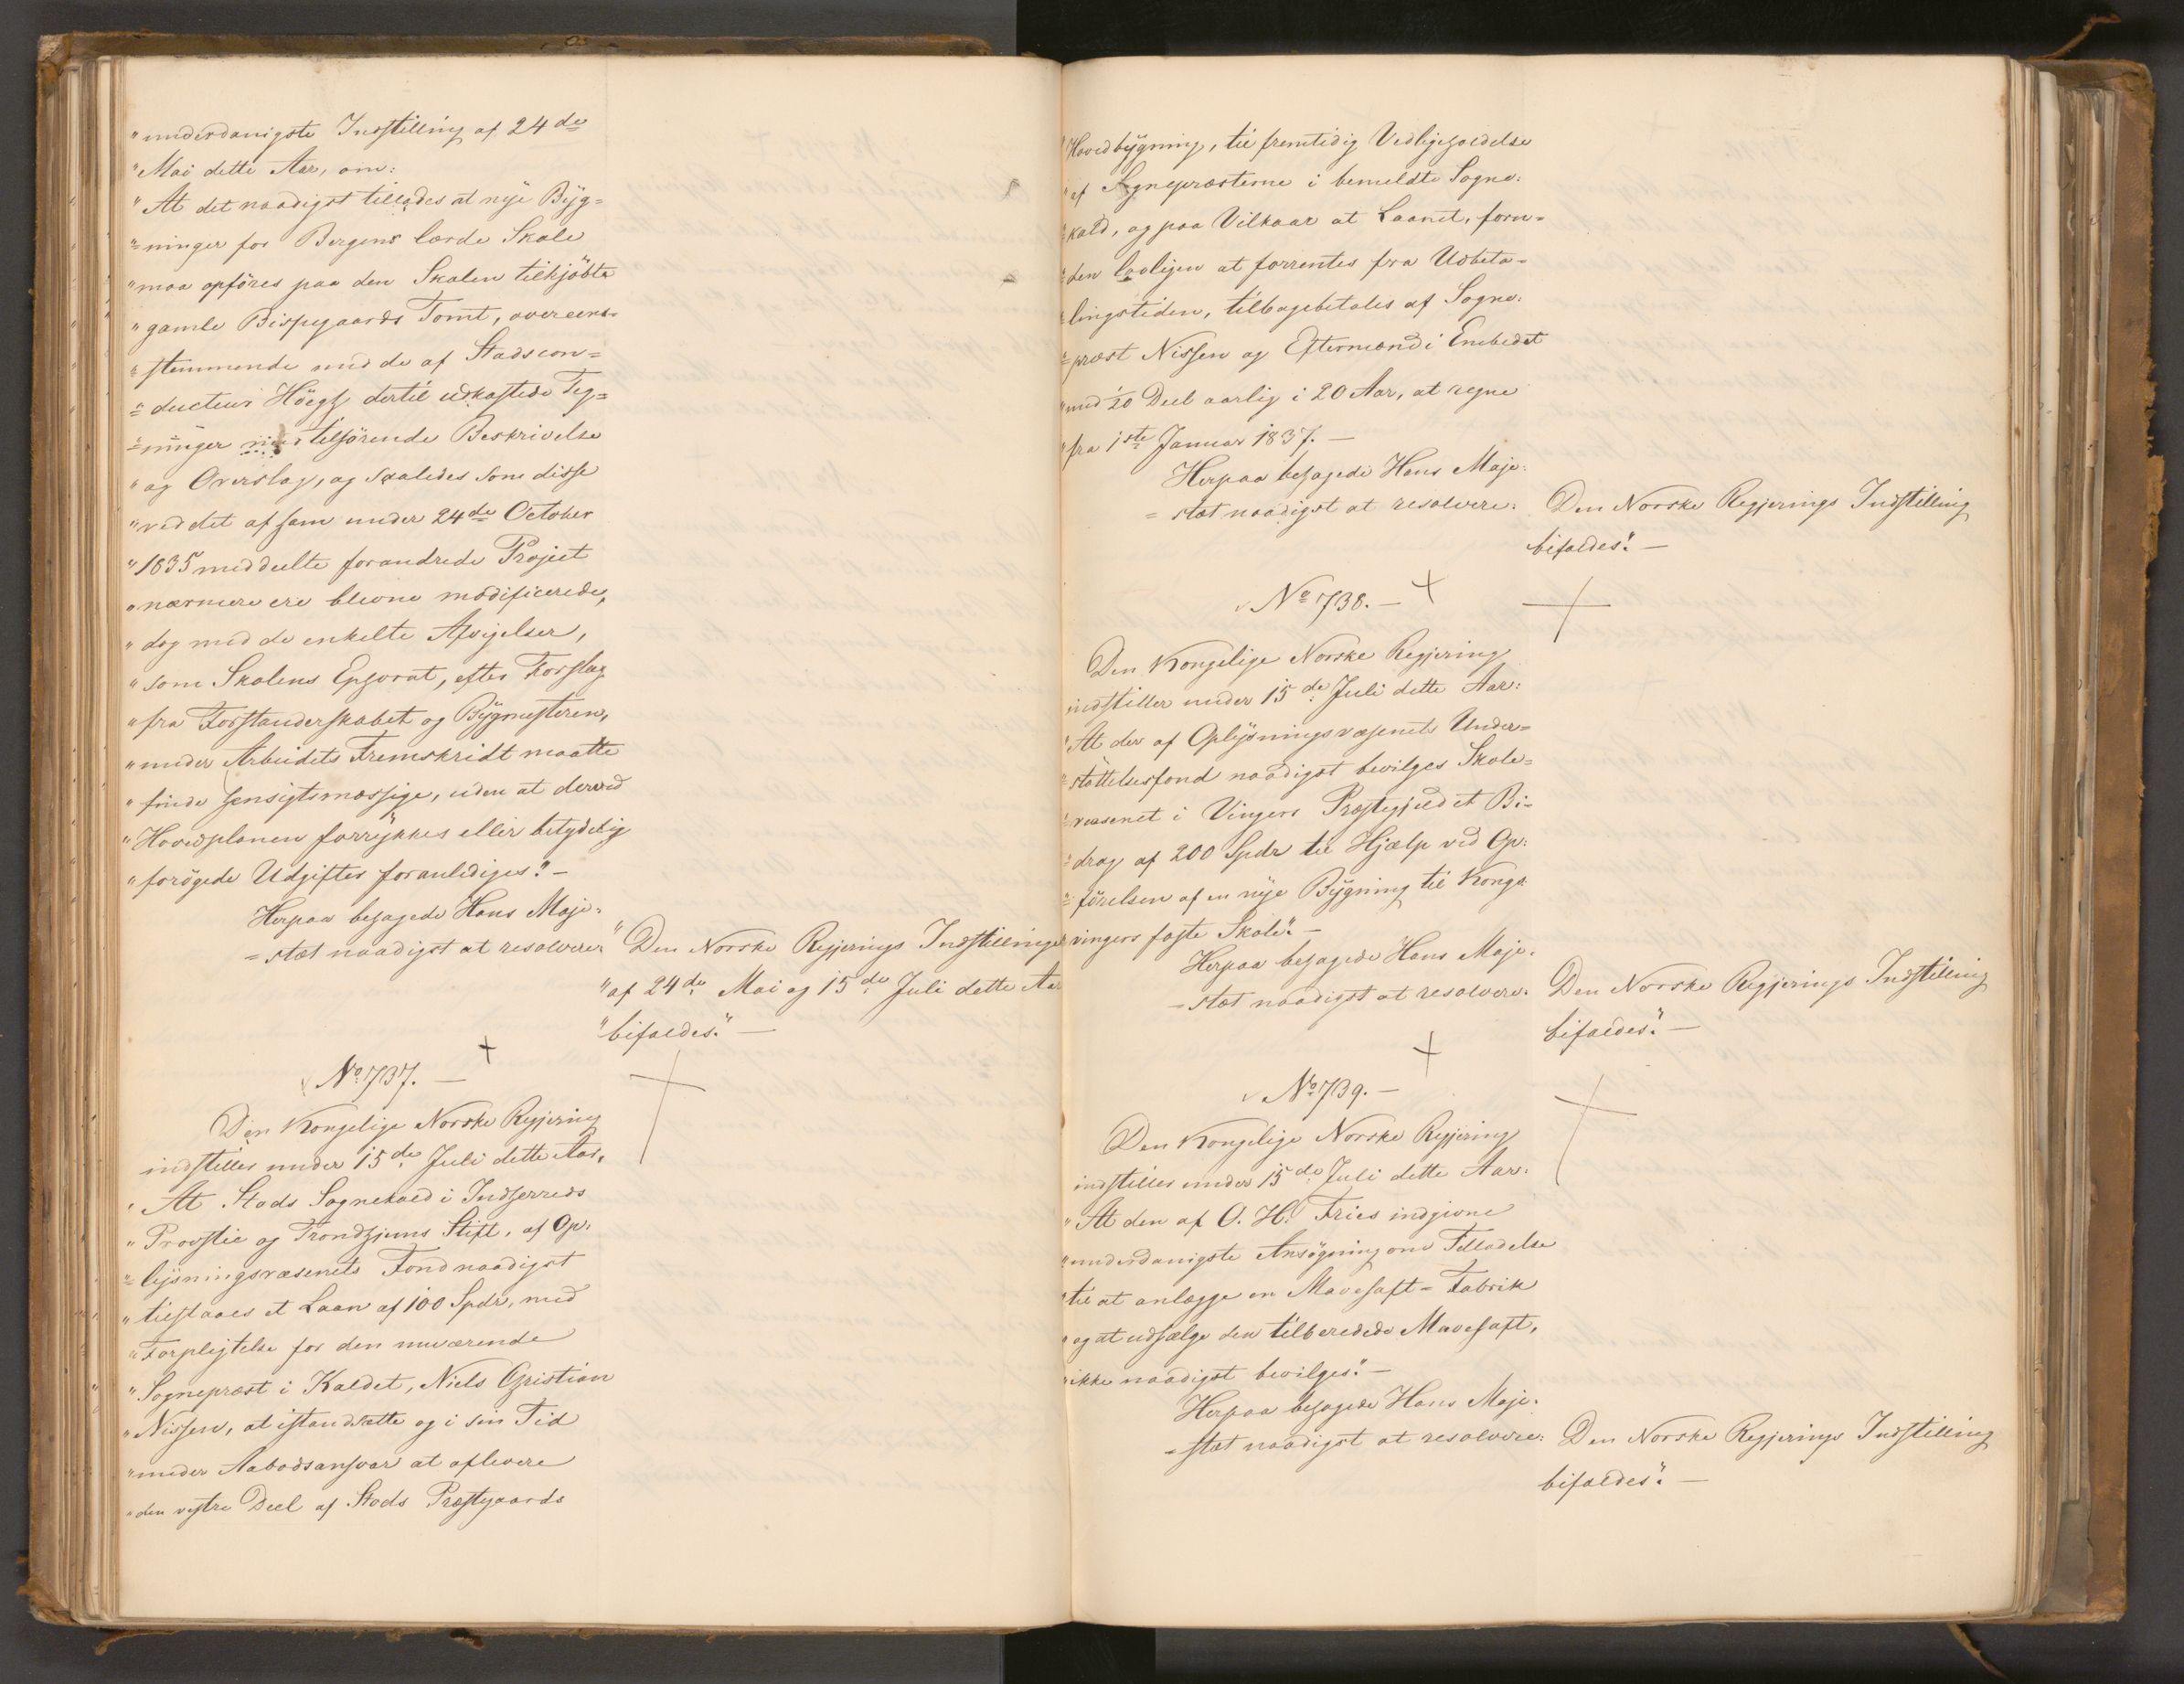 "underdanigste Indstilling af 24de
"Mai dette Aar, om:
"At det naadigst tillades at nye Byg=
"=ninger for Bergens lærde Skole
"maa opføres paa den Skolen tilkjöbte
"gamle Bispegaards Tomt, overeens-
"stemmende med de af Stadscon=
"=ducteur Höegh dertil udkastede Teg=
"=ninger med tilhörende Beskrivelse
"og Overslag, og saaledes som disse
"ved det af ham under 24de October
"1835 meddeelte forandrede Project
"nærmere ere blevne modificerede,
"dog med de enkelte Afvigelser,
"som Skolens Ephorat, efter Forslag
"fra Forstanderskabet og Bygmesteren,
"under Arbeidets Fremskridt maatte
"finde hensigtsmæssige, uden at derved
"Hovedplanen forrykkes eller betydelig
"forögede Udgifter foranlediges".-
Herpaa behagede Hans Maje-
=stæt naadigst at resolvere: "Den Norske Regjerings Indstillinger
"af 24de Mai og 15de Juli dette Aar
"bifaldes." —
No 737. —
Den Kongelige Norske Regjering
indstiller under 15de Juli dette Aar,
"At Stods Sognekald i Indherreds
"Provstie og Trondhjems Stift, af Op-
"=lysningsvæsenets Fond naadigst
"tilstaaes et Laan af 100 Spdr, med
"Forpligtelse for den nuværende
"Sognepræst i Kaldet, Niels Christian
"Nissen, at istandsætte og i sin Tid
"under Aabodsansvar at aflevere
"den vestre Deel af Stods Præstegaards
"Hovedbygning, til fremtidig Vedligeholdelse
"af Sognepræsterne i bemeldte Sogne-
"kald, og paa Vilkaar at Laanet, foru=
"den lovligen at forrentes fra Udbeta-
"lingstiden, tilbagebetales af Sogne-
"=præst Nissen og Eftermænd i Embedet
"med 1/20 Deel aarlig i 20 Aar, at regne
"fra 1ste Januar 1837. —
Herpaa behagede Hans Maje-
=stæt naadigst at resolvere: Den Norske Regjerings Indstilling
bifaldes". —
No 738. —
Den Kongelige Norske Regjering
indstiller under 15de Juli dette Aar:
"At der af Oplysningsvæsenets Under=
"=støttelsesfond naadigst bevilges Skole=
"væsenet i Vingers Præstegjeld et Bi-
"=drag af 200 Spdr til Hjælp ved Op-
"=førelsen af en nye Bygning til Kongs
vingers faste Skole". —
Herpaa behagede Hans Maje-
=stæt naadigst at resolvere: Den Norske Regjerings Indstilling
bifaldes". —
No 739. —
Den Kongelige Norske Regjering
indstiller under 15de Juli dette Aar:
"At den af O. H. Fries indgivne
"underdanigste Ansögning om Tilladelse
"til at anlægge en Mavesaft=Fabrik
"og at udsælge den tilberedede Mavesaft,
"ikke naadigst bevilges". —
Herpaa behagede Hans Maje-
=stæt naadigst at resolvere: Den Norske Regjerings Indstilling
bifaldes". —